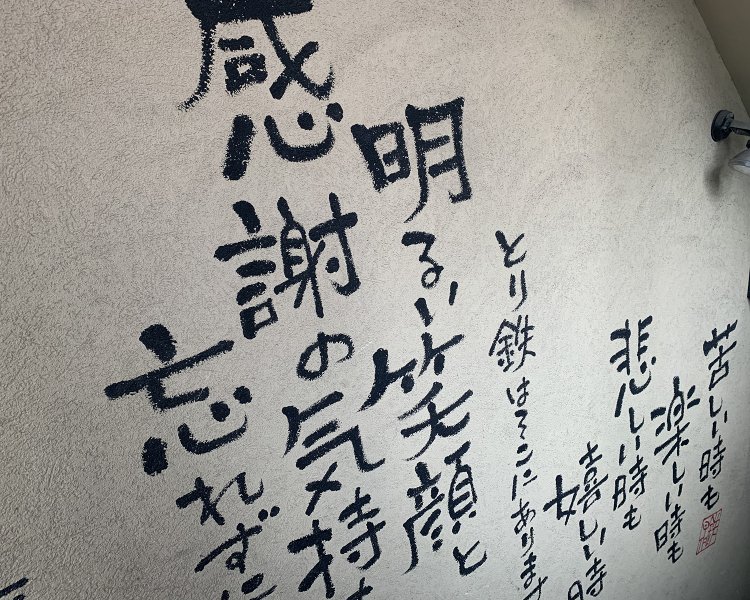 苦しい時も
楽しい時も
悲しい時も
嬉しい時
とり鉄はそこにあります
明るい笑顔と
感謝の気持
忘れずに